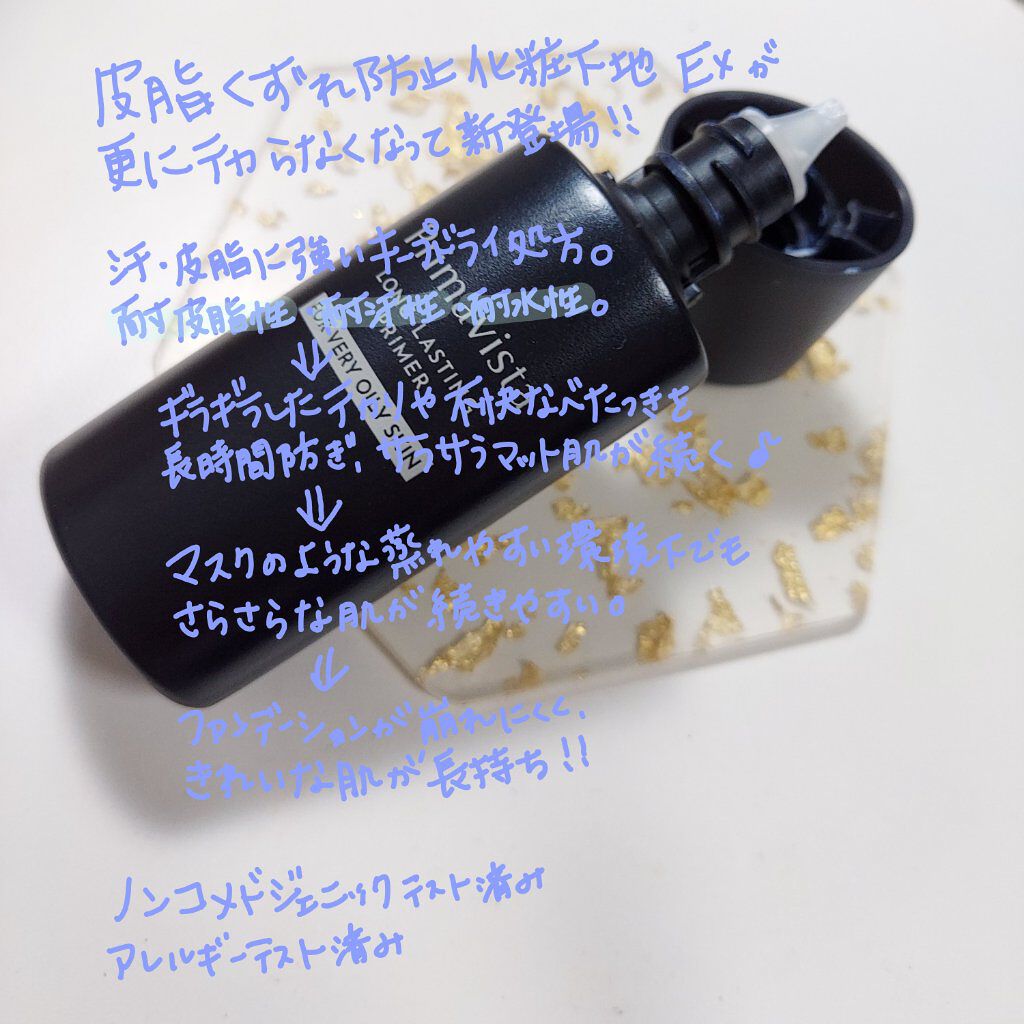 皮脂くずれ防止化粧下地 Exが
更にテカらなくなって新登場!!
汗・皮脂に強いキープドライ処方。
耐皮脂性・耐汗性・耐水性。
⇓
ギラギラしたテカリや不快なべたつきを
長時間防ぎ、サラサラマット肌が続く♪
⇓
マスクのような蒸れやすい環境下でも
さらさらな肌が続きやすい。
⇓
ファンデーションが崩れにくく、
きれいな肌が長持ち!!
ノンコメドジェニックテスト済み
アレルギーテスト済み
primavista
LONG LASTING
PRIMER
FOR VERY OILY SKIN